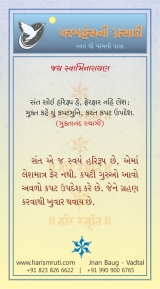 પરબ્રહ્મની પ્રસાદી
સ્વયં થી પરમની યાત્રા
જય સ્વામિનારાયણ
સંત સોઈ હરિરૂપ હૈ, ફેરફાર નહિ લેશ;
મુક્ત કહે યું કપટમુનિ, કરત કપટ ઉપદેશ.
(મુક્તાનંદ સ્વામી)
સંત એ જ સ્વયં હરિરૂપ છે, એમાં
લેશમાત્ર ફેર નથી. કપટી ગુરુઓ આવો
અવળો કપટ ઉપદેશ કરે છે. જેને ગ્રહણ
કરવાથી ખુવાર થવાય છે.
હરિ સ્મૃતિ
www.harismruti.com
Jnan Baug - Vadtal
+91 823 826 6622 | +91 990 900 6765